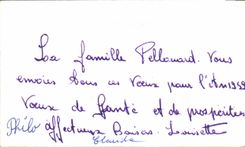 La famille Pellouard. Vous
envoies Bons ces Vœux pour l'An 1959
Vœux de Santé et de prospérités
Philo affectueux Baisers. Louisette
Claude